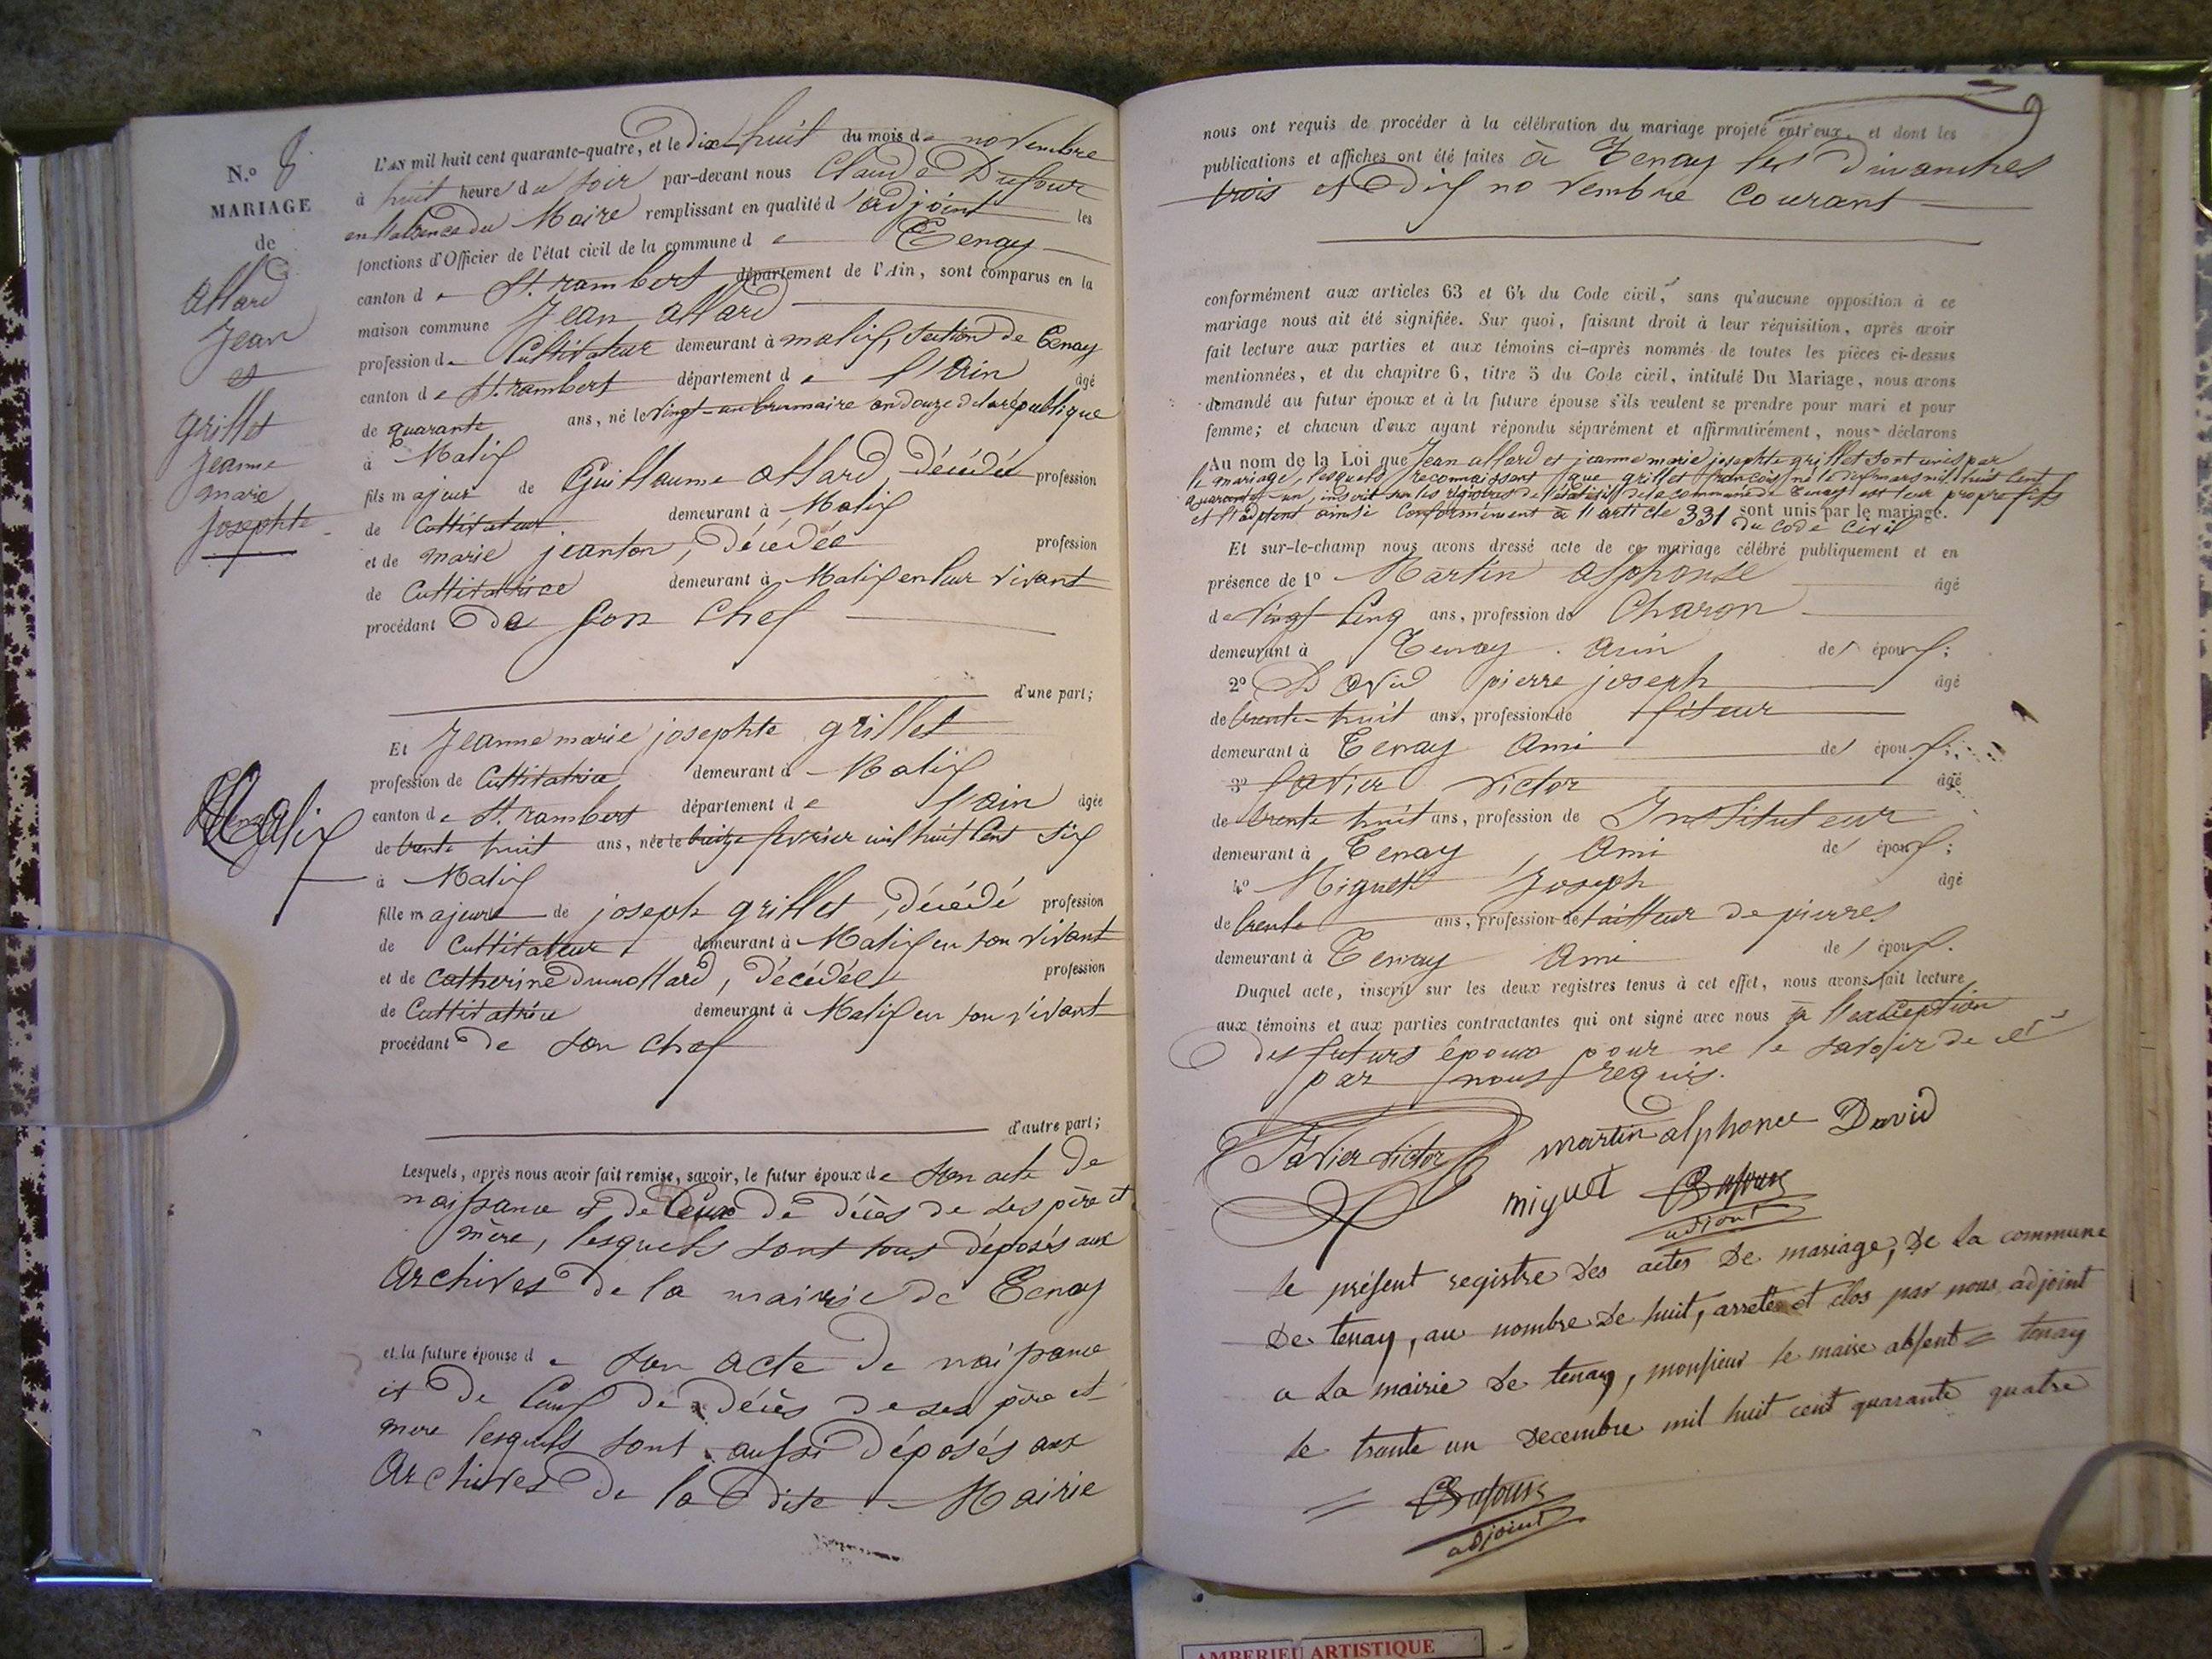 N.º 8
MARIAGE
de
allard
Jean
et
grillet
Jeanne
marie
josephte
Malix
L'AN mil huit cent quarante-quatre, et le dix huit du mois de novembre
à huit heure du soir par-devant nous Claude Dufour
en l'absence du Maire remplissant en qualité d'adjoint les
fonctions d'Officier de l'état civil de la commune de Tenay
canton de St. rambert département de l'Ain, sont comparus en la
maison commune Jean allard
profession de Cultivateur demeurant à malix, section de Tenay
canton de St. rambert département de l'Ain âgé
de quarante ans, né le vingt-un brumaire an douze de la république
à Malix
fils majeur de Guillaume allard, décédé profession
de Cultivateur demeurant à Malix
et de marie jeanton, décédée profession
de Cultivatrice demeurant à Malix en leur vivant
procédant de son chef
d'une part;
Et Jeanne marie josephte grillet
profession de Cultivatrice demeurant à Malix
canton de St. rambert département de l'ain âgée
de trente huit ans, née le février mil huit cent six
à Malix
fille majeure de joseph grillet, décédé profession
de Cultivateur demeurant à Malix en son vivant
et de Catherine dumollard, décédée profession
de Cultivatrice demeurant à Malix en son vivant
procédant de son chef
d'autre part;
Lesquels, après nous avoir fait remise, savoir, le futur époux de son acte de
naissance et de Ceux de décès de ses père et
mère, lesquels sont tous déposés aux
Archives de la mairie de Tenay
et la future épouse de son acte de naissance
et de Ceux de décès de ses père et
mere lesquels sont aussi déposés aux
Archives de la dite Mairie
nous ont requis de procéder à la célébration du mariage projeté entr'eux, et dont les
publications et affiches ont été faites à Tenay les dimanches
trois et dix novembre courant
conformément aux articles 63 et 64 du Code civil, sans qu'aucune opposition à ce
mariage nous ait été signifiée. Sur quoi, faisant droit à leur réquisition, après avoir
fait lecture aux parties et aux témoins ci-après nommés de toutes les pièces ci-dessus
mentionnées, et du chapitre 6, titre 5 du Code civil, intitulé Du Mariage, nous avons
demandé au futur époux et à la future épouse s'ils veulent se prendre pour mari et pour
femme; et chacun d'eux ayant répondu séparément et affirmativement, nous déclarons
Au nom de la Loi que Jean allard et jeanne marie josephte grillet sont unis par
le mariage, lesquels reconnaissent que grillet françois né le dix mars mil huit Cent
quarante-un, inscrit sur les régistres de l'état civil de la commune de Tenay est leur propre fils
et l'adoptent ainsi Conformément à l'article 331 sont unis par le mariage.
du Code Civil
Et sur-le-champ nous avons dressé acte de ce mariage célébré publiquement et en
présence de 1º Martin alphonse âgé
de vingt Cinq ans, profession de Charon
demeurant à Tenay . ami des époux;
2º David pierre joseph âgé
de trente-huit ans, profession de
demeurant à Tenay Ami des époux;
3º Savier Victor âgé
de trente huit ans, profession de Instituteur
demeurant à Tenay, Ami des époux;
4º Miguet Joseph âgé
de trente ans, profession de tailleur de pierres
demeurant à Tenay Ami des époux.
Duquel acte, inscrit sur les deux registres tenus à cet effet, nous avons fait lecture
aux témoins et aux parties contractantes qui ont signé avec nous à l'exception
des futurs époux pour ne le savoir de ce
par nous requis.
Savier Victor martin alphonce David
miguet Dufour
adjoint
le présent registre des actes de mariage, de la commune
de tenay, au nombre de huit, arrêté et clos par nous adjoint
a la mairie de tenay, monsieur le maire absent = tenay
le trante un decembre mil huit cent quarante quatre
= Dufour
adjoint
AMBERIEU ARTISTIQUE